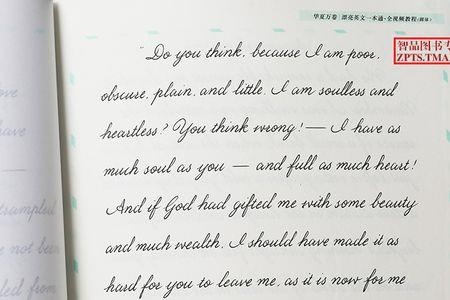 华夏万卷 | 漂亮英文一本通·全视频教程(圆体)
智品图书专
ZPTS.TMA
"Do you think, because I am poor,
obscure, plain, and little, I am soulless and
heartless? You think wrong! — I have as
much soul as you — and full as much heart!
And if God had gifted me with some beauty
and much wealth, I should have made it as
hard for you to leave me, as it is now for me
ove
have
trampled
e not been
led from